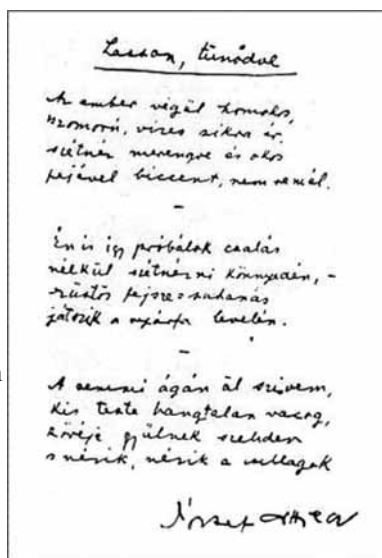 Lassan, tünődve
Az ember végül homokos,
szomorú, vizes sikra ér,
szétnéz merengve és okos
fejével biccent, nem remél.
–
Én is így próbálok csalás
nélkül szétnézni könnyedén, –
ezüstös fejszesuhanás
játszik a nyárfa levelén.
–
A semmi ágán ül szivem,
kis teste hangtalan vacog,
köréje gyülnek szeliden
s nézik, nézik a csillagok
József Attila